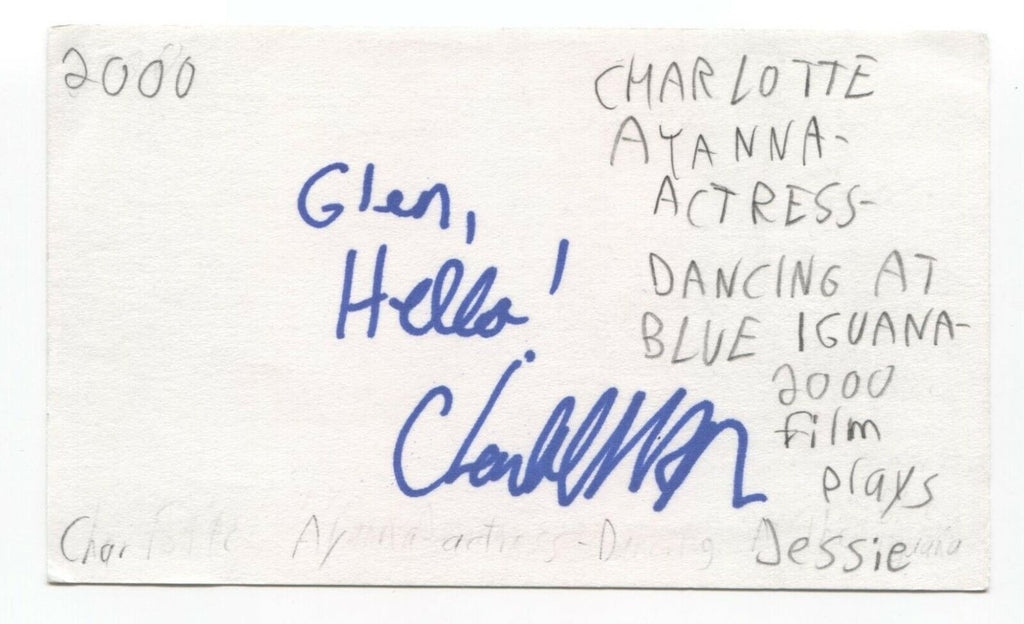 2000
CHARLOTTE
AYANNA-
ACTRESS-
DANCING AT
BLUE IGUANA-
2000
film
plays
Jessie
Glen,
Hello!
Charlotte
Charlotte Ayanna-actress-Dancing At Blue Iguana